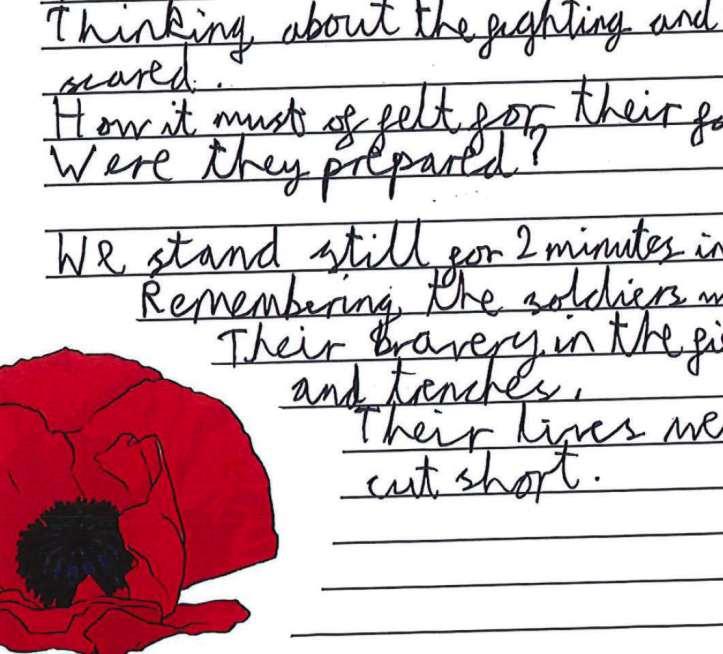 Thinking about the fighting and
scared.
How it must of felt for their
Were they prepared?
We stand still for 2 minutes in
Remembering the soldiers
Their bravery in the
and trenches.
Their lives
cut short.